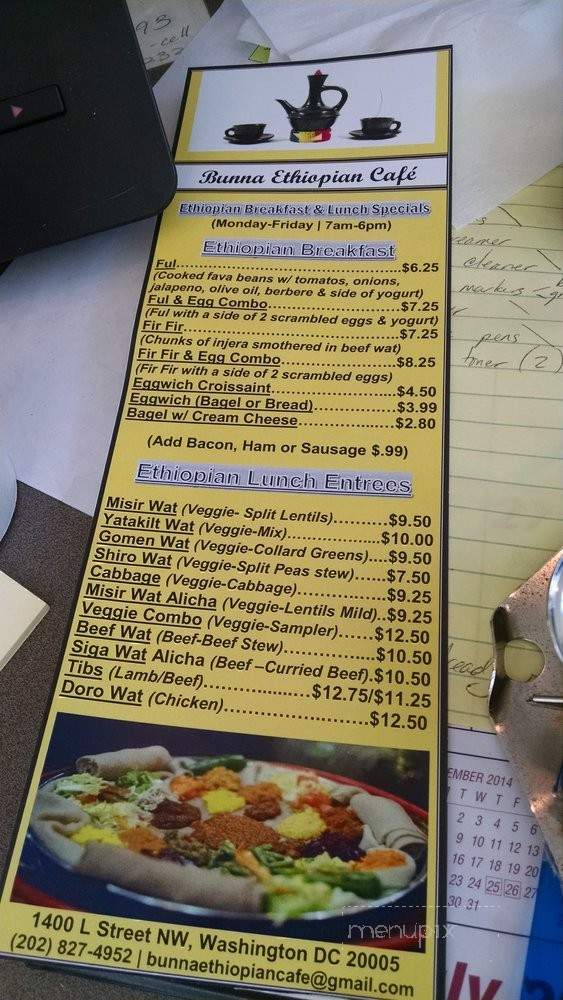 93
-cell
Bunna Ethiopian Café
Ethiopian Breakfast & Lunch Specials
(Monday-Friday | 7am-6pm)
Ethiopian Breakfast
Ful.....................................................$6.25
(Cooked fava beans w/ tomatos, onions,
jalapeno, olive oil, berbere & side of yogurt)
Ful & Egg Combo..............................$7.25
(Ful with a side of 2 scrambled eggs & yogurt)
Fir Fir..................................................$7.25
(Chunks of injera smothered in beef wat)
Fir Fir & Egg Combo..........................$8.25
(Fir Fir with a side of 2 scrambled eggs)
Eggwich Croissaint............................$4.50
Eggwich (Bagel or Bread)..................$3.99
Bagel w/ Cream Cheese.....................$2.80
(Add Bacon, Ham or Sausage $.99)
Ethiopian Lunch Entrees
Misir Wat (Veggie- Split Lentils)..........$9.50
Yatakilt Wat (Veggie-Mix).....................$10.00
Gomen Wat (Veggie-Collard Greens)....$9.50
Shiro Wat (Veggie-Split Peas stew)......$7.50
Cabbage (Veggie-Cabbage)..................$9.25
Misir Wat Alicha (Veggie-Lentils Mild)..$9.25
Veggie Combo (Veggie-Sampler)......$12.50
Beef Wat (Beef-Beef Stew)...................$10.50
Siga Wat Alicha (Beef –Curried Beef).$10.50
Tibs (Lamb/Beef).....................$12.75/$11.25
Doro Wat (Chicken)............................$12.50
1400 L Street NW, Washington DC 20005
(202) 827-4952 | bunnaethiopiancafe@gmail.com
cleaner
markers
pens
toner (2)
EMBER 2014
T W T F
2 3 4 5 6
9 10 11 12 13
16 17 18 19 20
23 24 25 26 27
30 31
ly
menupix